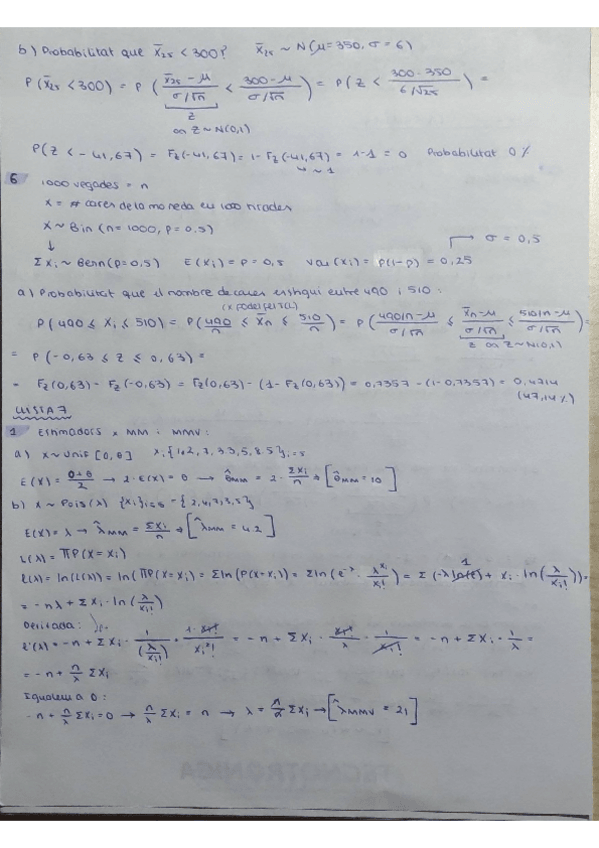 b) Probabilitat que x̄₂₅ < 300? x̄₂₅ ~ N(μ=350, σ=6)
P(x̄₂₅ < 300) = P( (x̄₂₅ - μ)/(σ/√n) < (300 - μ)/(σ/√n) ) = P( Z < (300 - 350)/(6/√25) ) =
Z
on Z ~ N(0,1)
P(Z < -41,67) = Fz(-41,67) = 1 - Fz(-41,67) = 1-1 = 0 Probabilitat 0%
~ 1
6 1000 vegades = n
X = # cares de la moneda en 1000 tirades
X ~ Bin (n = 1000, p = 0,5)
↓ → σ = 0,5
ΣXi ~ Bern(p=0,5) E(Xi) = p = 0,5 Var(Xi) = p(1-p) = 0,25
a) Probabilitat que el nombre de cares estigui entre 490 i 510:
P(490 ≤ Xi ≤ 510) = P( 490/n ≤ X̄n ≤ 510/n ) = P( (490/n - μ)/(σ/√n) ≤ (X̄n - μ)/(σ/√n) ≤ (510/n - μ)/(σ/√n) ) =
Z on Z ~ N(0,1)
= P(-0,63 ≤ Z ≤ 0,63) =
= Fz(0,63) - Fz(-0,63) = Fz(0,63) - (1 - Fz(0,63)) = 0,7357 - (1-0,7357) = 0,4714
(47,14%)
LLISTA 7
1 Estimadors x MM i MMV:
a) X ~ Unif [0, θ]
E(X) = (0+θ)/2 → 2·E(X) = θ → θ̂MM = 2 · ΣXi/n ⇒ [θ̂MM = 10]
b) X ~ Pois(λ) {Xi}i=5 = {2,4,7,3,5}
E(X) = λ → λ̂MM = ΣXi/n ⇒ [λ̂MM = 4.2]
L(λ) = ΠP(X = Xi)
ℓ(λ) = ln(L(λ)) = ln(ΠP(X=Xi)) = Σln(P(X=Xi)) = Σln(e^-λ · λ^Xi/Xi!) = Σ(-λ ln(e) + Xi · ln(λ/Xi!)) =
1
= -nλ + ΣXi · ln(λ/Xi!)
Derivada:
ℓ'(λ) = -n + ΣXi · 1/(λ/Xi!) · 1·Xi!/Xi!² = -n + ΣXi · Xi!/λ · 1/Xi! = -n + ΣXi · 1/λ =
= -n + n/λ ΣXi
Igualem a 0:
-n + n/λ ΣXi = 0 → n/λ ΣXi = n → λ = n/n ΣXi → [λ̂MMV = 21]